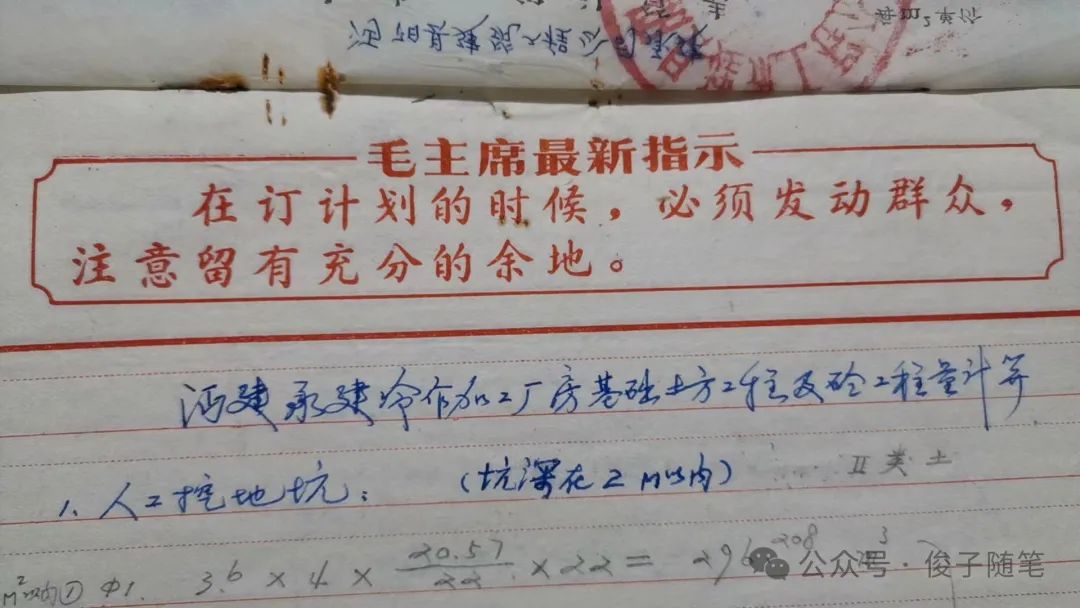 每m2单价
沔阳县建筑工程公司
毛主席最新指示
在订计划的时候，必须发动群众，
注意留有充分的余地。
沔建承建冷作加工厂房基础土方工程及砼工程量计算
1. 人工挖地坑：（坑深在2M以内） II类土
M²以内① Φ1. 3.6 × 4 × 20.57/22 × 22 = 296.208 M³
公众号·俊子随笔